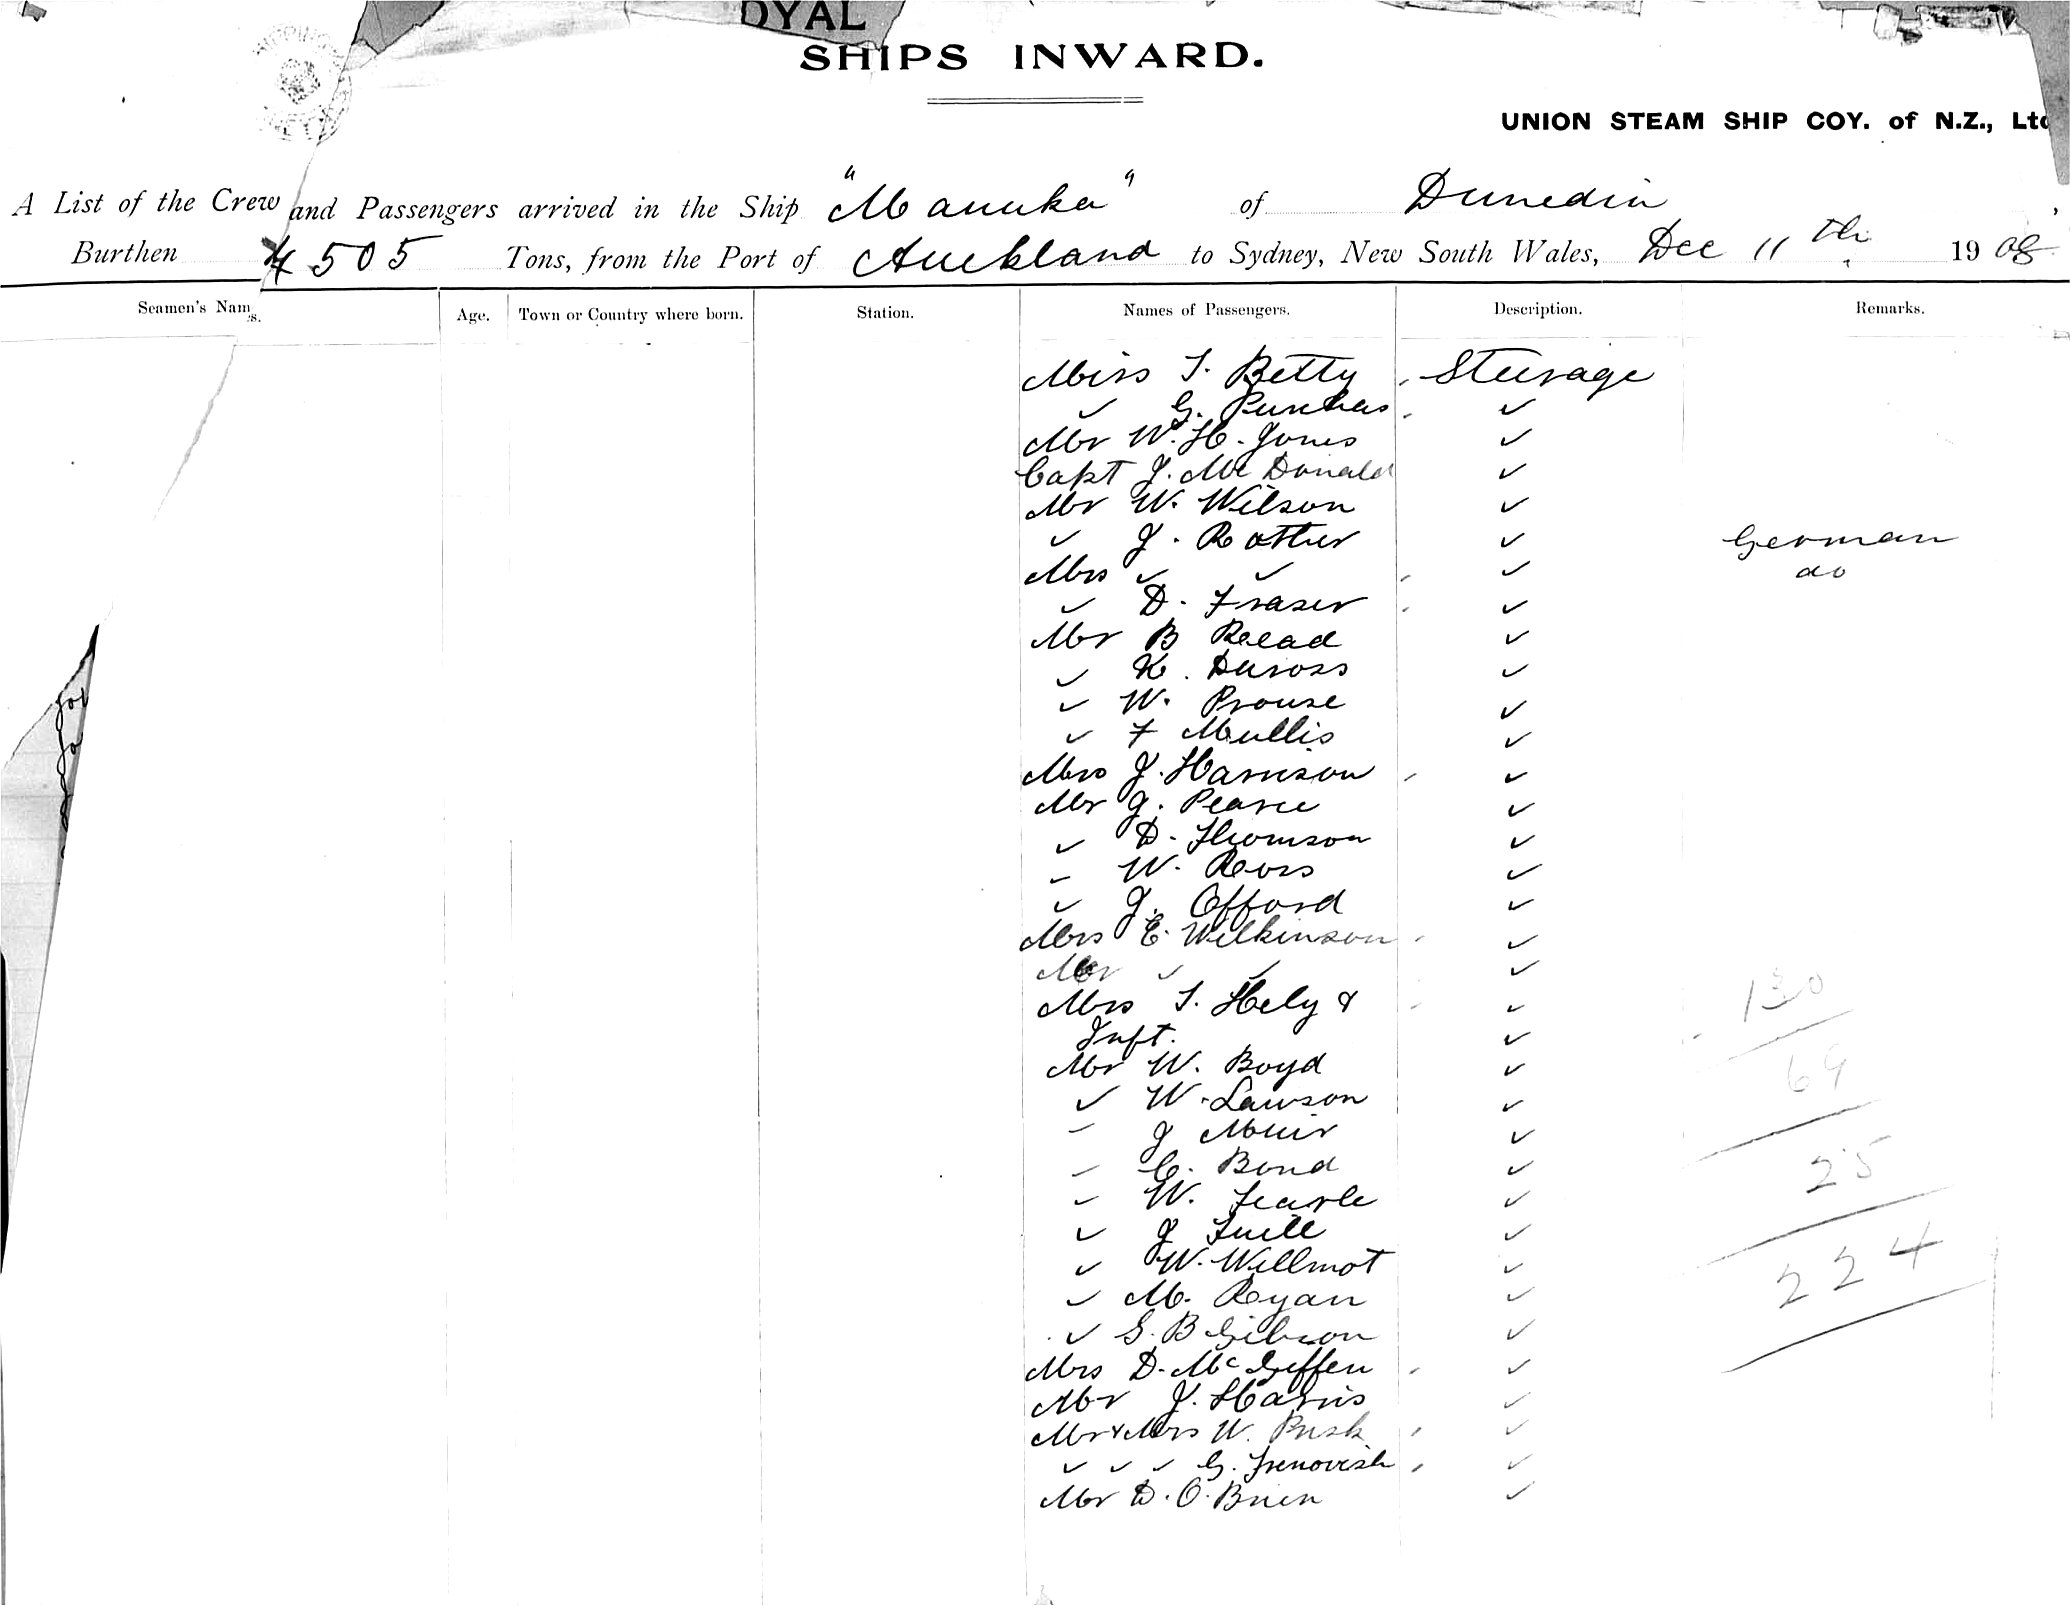 OYAL
SHIPS INWARD.
UNION STEAM SHIP COY. of N.Z., Ltd
A List of the Crew and Passengers arrived in the Ship "Manuka" of Dunedin
Burthen 4505 Tons, from the Port of Auckland to Sydney, New South Wales, Dec 11th 1908
Seamen's Names. Age. Town or Country where born. Station. Names of Passengers. Description. Remarks.
Miss T. Betty Steerage
✓ G. Purchas ✓
Mr W. H. Jones ✓
Capt J. Mc Donald ✓
Mr W. Wilson ✓
✓ J. Rother ✓ German
Mrs ✓ ✓ ✓ do
✓ D. Fraser ✓
Mr B Read ✓
✓ K. Duross ✓
✓ W. Prouse ✓
✓ F Mullis ✓
Mrs J. Harrison ✓
Mr J. Pearce ✓
✓ D. Thomson ✓
✓ W. Ross ✓
✓ J. Offord ✓
Mrs E. Wilkinson ✓
Mr ✓ ✓ ✓
Mrs T. Hely & ✓
Inft. ✓
130
Mr W. Boyd ✓
69
✓ W. Lawson ✓
✓ J Muir ✓
✓ C. Bond ✓
25
✓ W. Searle ✓
✓ J Tuill ✓
✓ W. Willmot ✓
224
✓ M. Ryan ✓
✓ G. B Gibson ✓
Mrs D. McGiffen ✓
Mr J. Harris ✓
Mr & Mrs W. Prisk ✓
✓ ✓ ✓ G. ✓
Mr D. O. Brien ✓